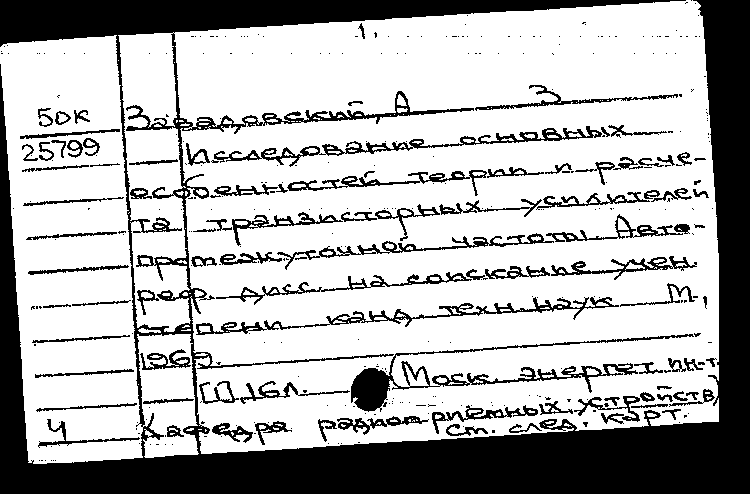 1.
50К Завадовский, А З
25799 Исследование основных
особенностей теории и расче-
та транзисторных усилителей
промежуточной частоты. Авто-
реф. дисс. на соискание учен.
степени канд. техн. наук М.,
1969.
[I], 16 л. (Моск. энергет. ин-т.
Ч Кафедра радиоприемных устройств)
см. след. карт.